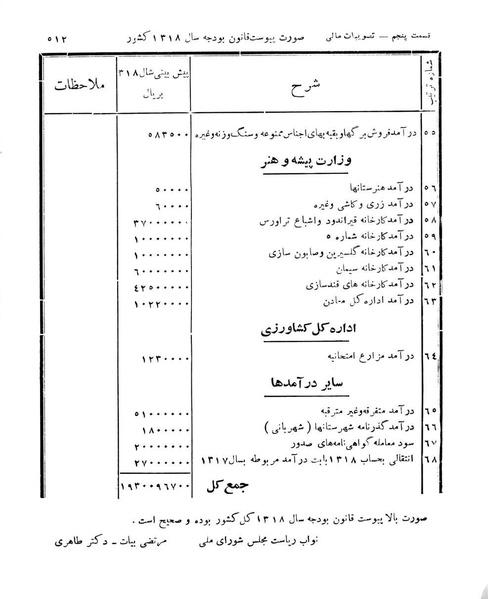 قسمت پنجم — تصویبات مالی صورت پیوست قانون بودجه سال ۱۳۱۸ کشور ۵۱۲
شماره ترتیب شرح پیش بینی سال ۳۱۸ بریال ملاحظات
۵۵ درآمد فروش برگها و بقیه بهای اجناس ممنوعه و سنگ وزنه و غیره ۵۸۳۵۰۰
وزارت پیشه و هنر
۵۶ درآمد هنرستانها ۵۰۰۰۰
۵۷ درآمد زری و کاشی وغیره ۶۰۰۰۰
۵۸ درآمد کارخانه قیراندود واشباع تراورس ۳۷۰۰۰۰۰۰
۵۹ درآمد کارخانه شماره ۵ ۱۰۰۰۰۰۰
۶۰ درآمد کارخانه گلسیرین وصابون سازی ۱۰۰۰۰۰۰
۶۱ درآمد کارخانه سیمان ۶۰۰۰۰۰۰
۶۲ درآمد کارخانه های قندسازی ۴۲۵۰۰۰۰۰
۶۳ درآمد اداره کل معادن ۱۰۲۲۰۰۰۰
اداره کل کشاورزی
۶۴ درآمد مزارع امتحانیه ۱۲۳۰۰۰۰
سایر درآمدها
۶۵ درآمد متفرقه وغیر مترقبه ۵۱۰۰۰۰۰۰
۶۶ درآمد گذرنامه شهرستانها ( شهربانی ) ۱۸۰۰۰۰۰
۶۷ سود معامله گواهی نامه‌های صدور ۲۰۰۰۰۰۰۰
۶۸ انتقالی بحساب ۱۳۱۸ بابت درآمد مربوطه بسال ۱۳۱۷ ۲۷۰۰۰۰۰۰
جمع کل ۱۹۳۰۰۹۶۷۰۰
صورت بالا پیوست قانون بودجه سال ۱۳۱۸ کل کشور بوده و صحیح است .
نواب ریاست مجلس شورای ملی مرتضی بیات ــ دکتر طاهری